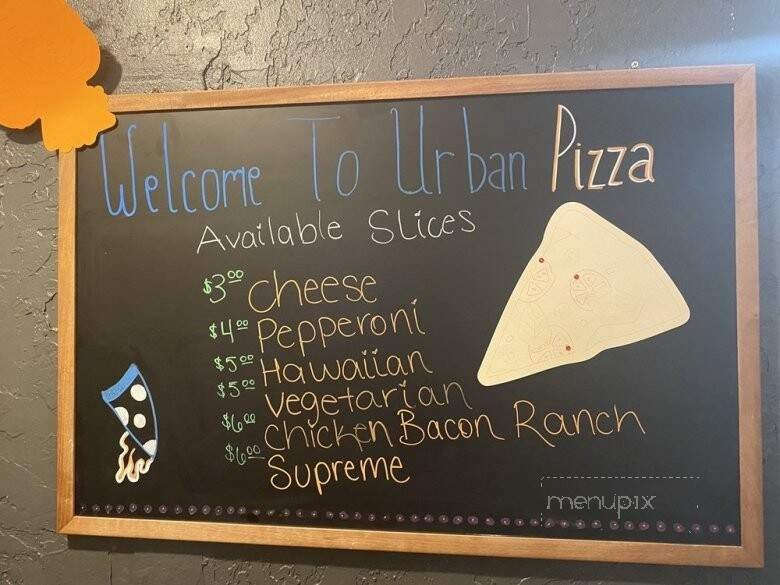 Welcome To Urban Pizza
Available Slices
$3.00 cheese
$4.00 Pepperoni
$5.00 Hawaiian
$5.00 vegetarian
$6.00 chicken Bacon Ranch
$6.00 Supreme
menupix